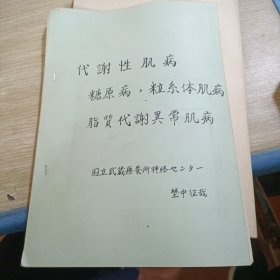 代謝性肌病
糖原病，粒糸体肌病
脂質代謝異常肌病
国立武蔵療養所神経センター
埜中征哉